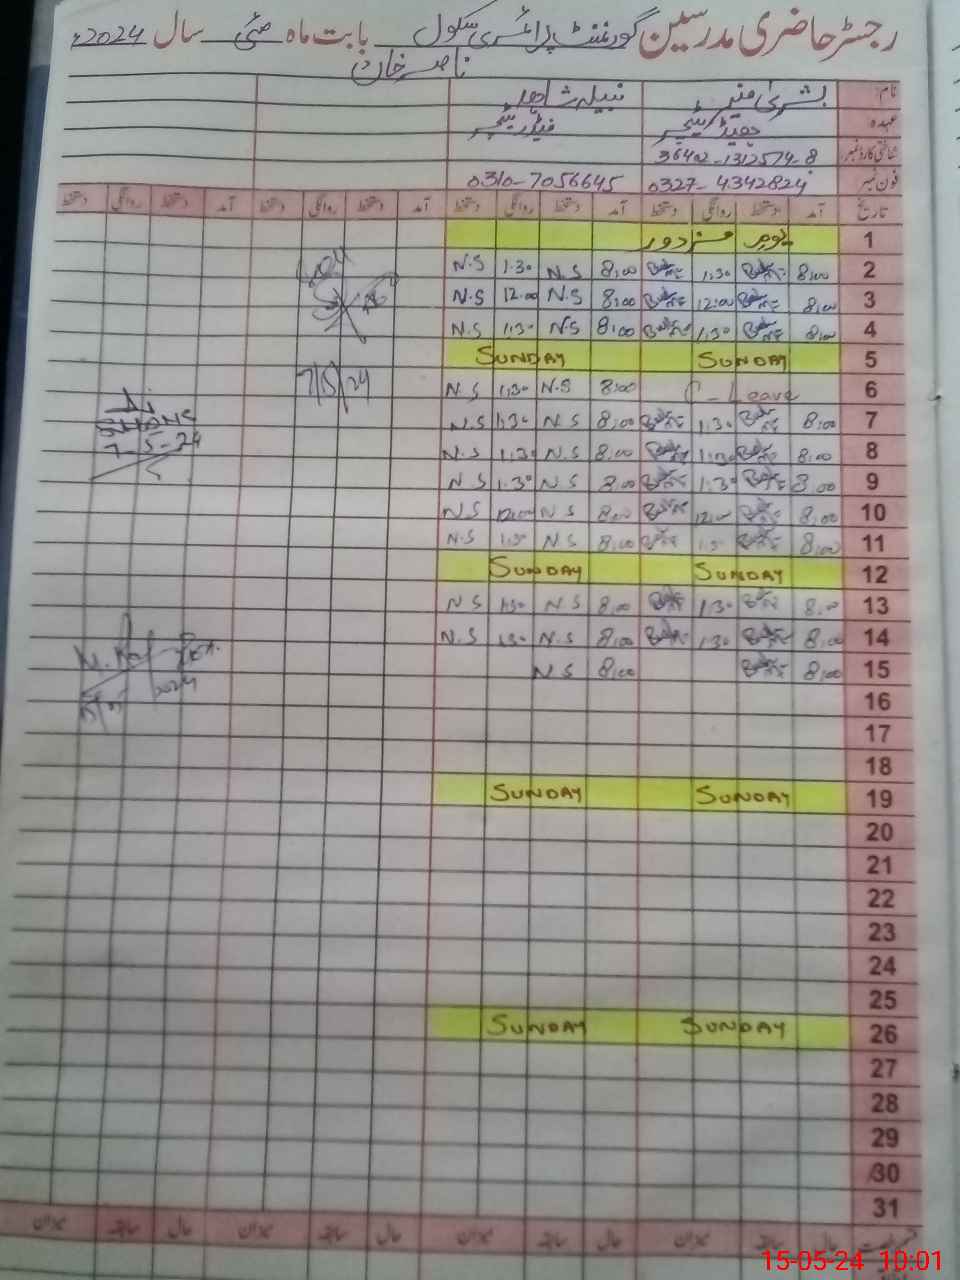 رجسٹر حاضری مدرسین گورنمنٹ پرائمری سکول بابت ماہ مئی سال 2024ء
ناصر خان
نام: بشریٰ منیر نبیلہ شاہد
عہدہ ہیڈ ٹیچر
شناختی کارڈ نمبر 36402-1312574-8
فون نمبر 0327-4342824 0310-7056645
تاریخ آمد دستخط روانگی دستخط آمد دستخط روانگی دستخط آمد دستخط روانگی دستخط آمد دستخط روانگی دستخط
1 یوم مزدور
2 8:00 1:30 8:00 N.S 1:30 N.S
3 8:00 12:00 8:00 N.S 12:00 N.S
4 8:00 1:30 8:00 N.S 1:30 N.S
5 SUNDAY SUNDAY
6 C-Leave 8:00 N.S 1:30 N.S
7/5/24
7 8:00 1:30 8:00 N.S 1:30 N.S
7-5-24
8 8:00 1:30 8:00 N.S 1:30 N.S
9 8:00 1:30 8:00 N.S 1:30 N.S
10 8:00 12:00 8:00 N.S 12:00 N.S
11 8:00 1:30 8:00 N.S 1:30 N.S
12 SUNDAY SUNDAY
13 8:00 1:30 8:00 N.S 1:30 N.S
14 8:00 1:30 8:00 N.S 1:30 N.S
15 8:00 8:00 N.S
16
17
18
19 SUNDAY SUNDAY
20
21
22
23
24
25
26 SUNDAY SUNDAY
27
28
29
30
31
حال سابقہ میزان حال سابقہ میزان حال سابقہ میزان حال سابقہ میزان
15-05-24 10:01